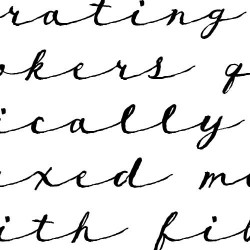 rating
okers q
ically
ixed m
ith fil